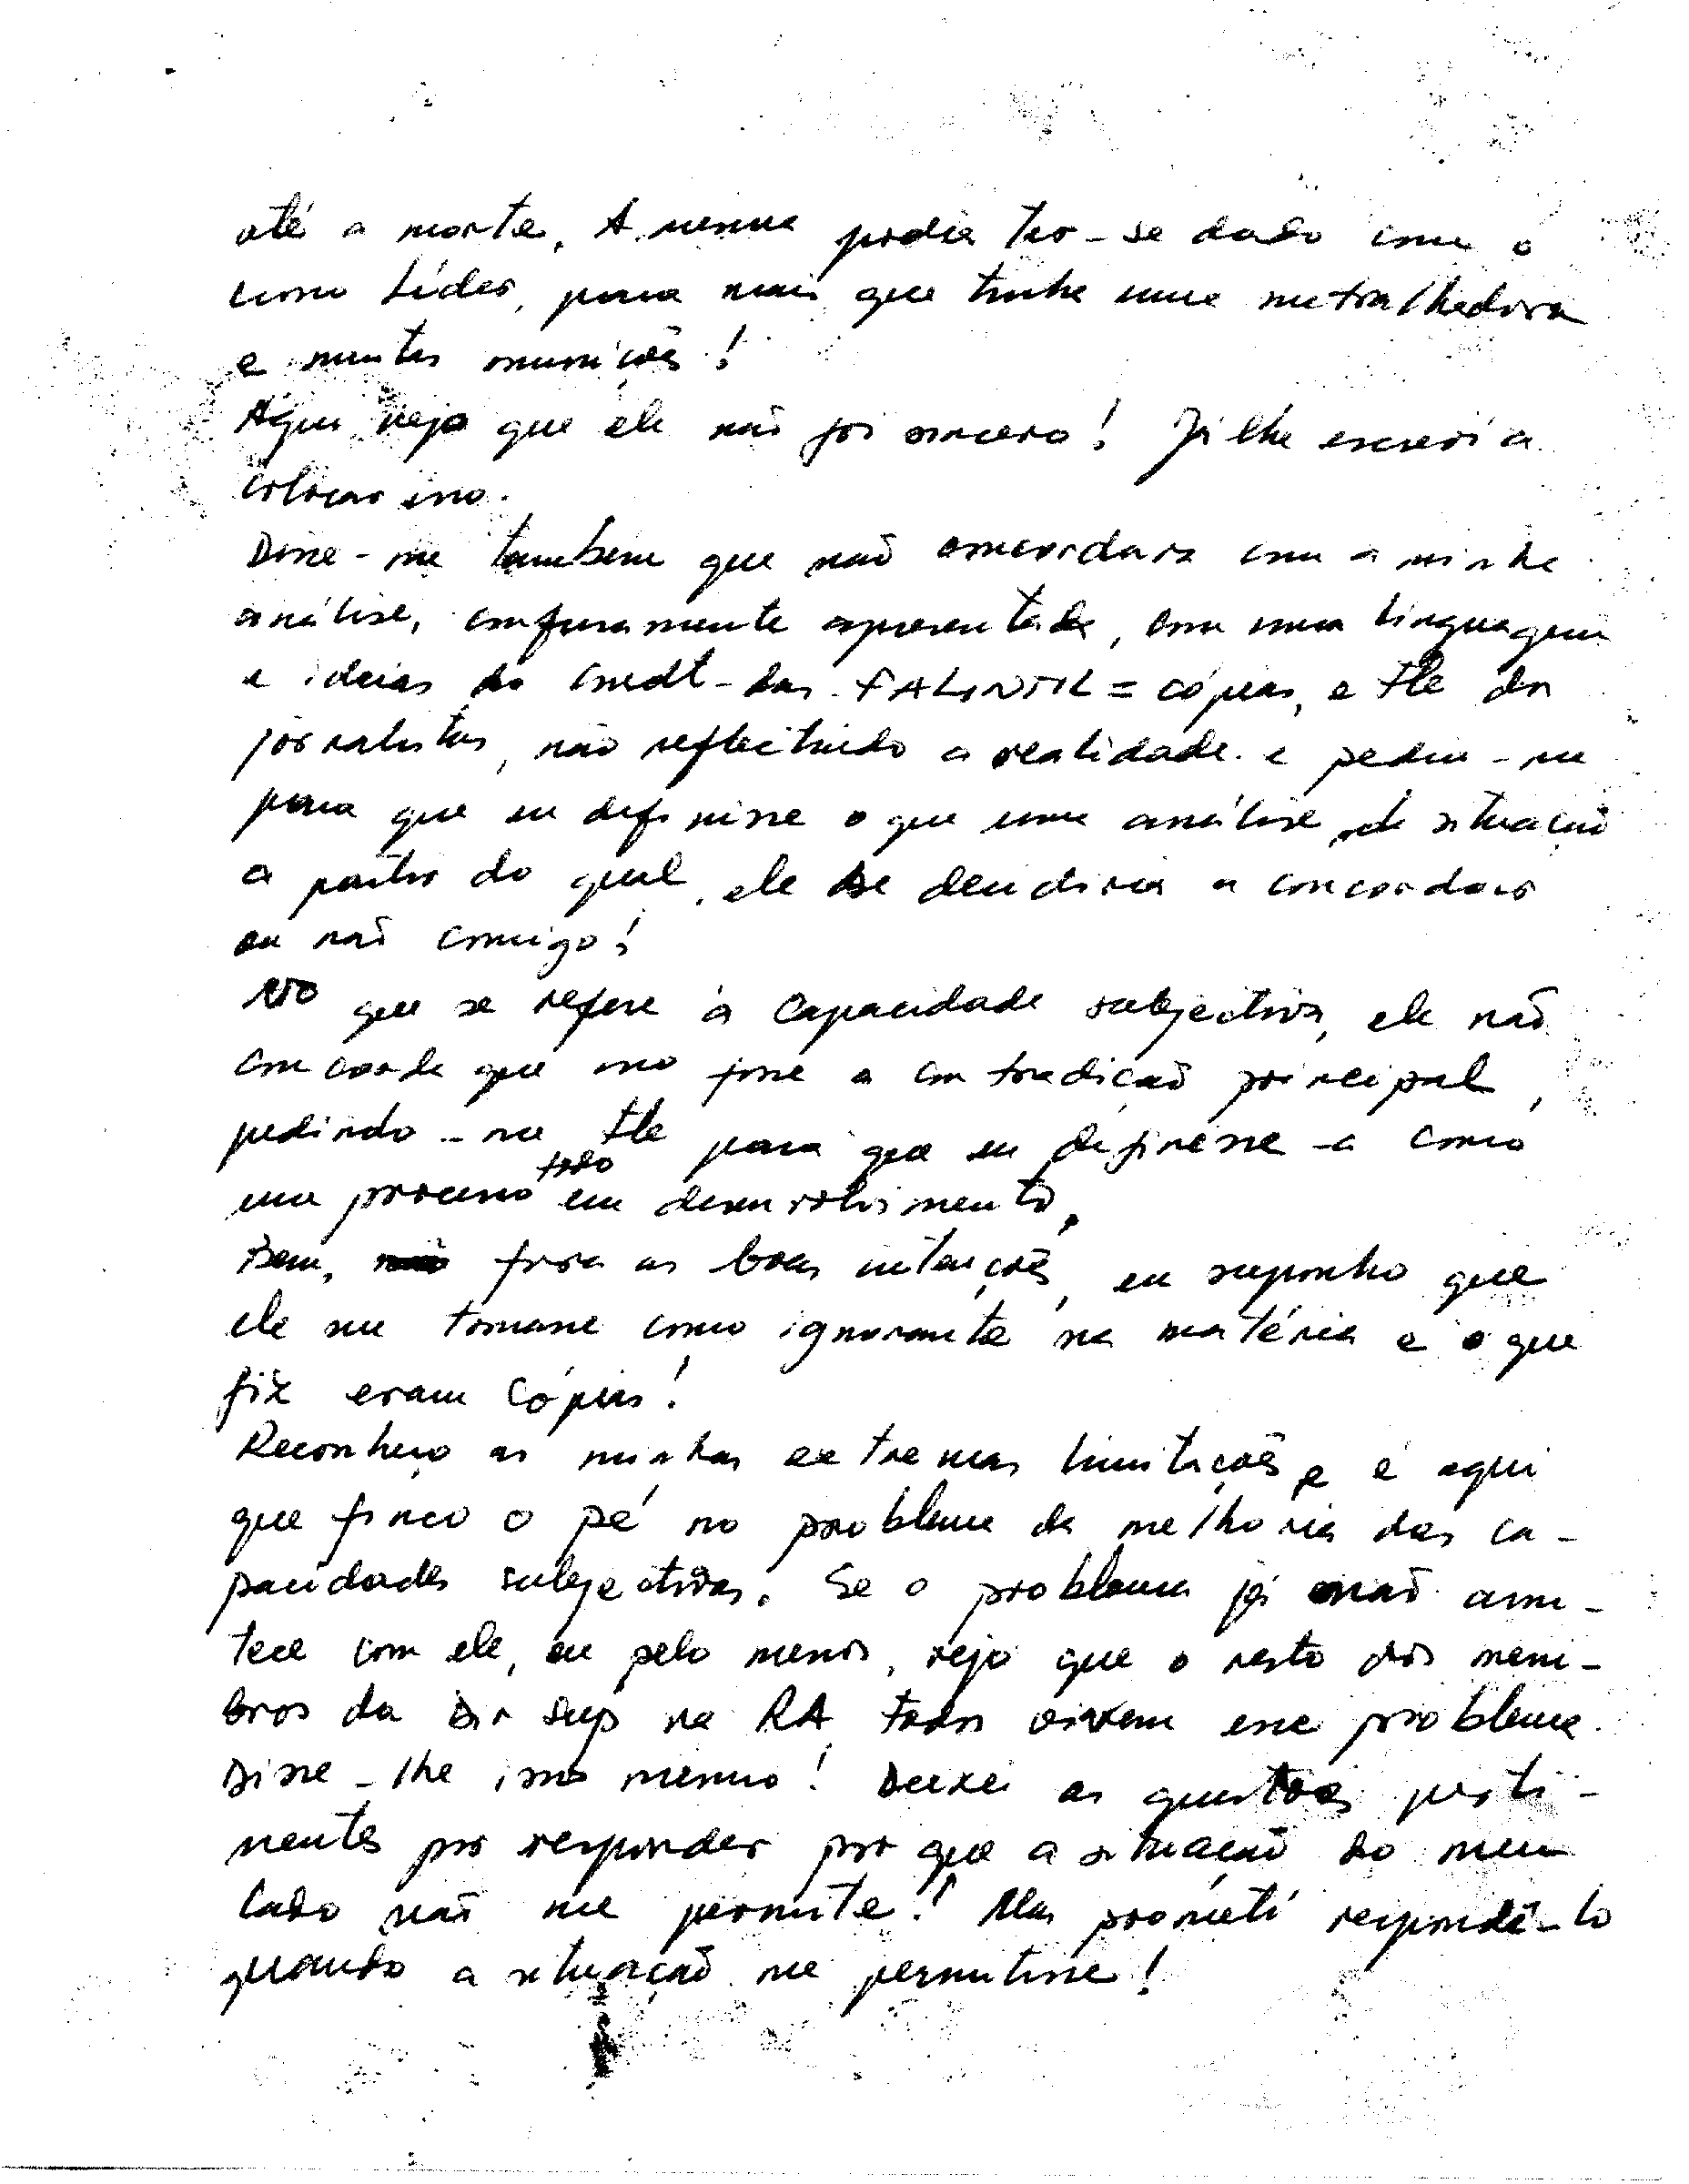 até a morte. A mesma podia ter-se dado com o
como líder, para mais que tinha uma metralhadora
e muitas munições!
Aqui vejo que ele não foi sincero! Já lhe escrevi a
colocar isso.
Disse-me também que não concordara com a minha
análise, confusamente apresentada, com uma linguagem
e ideias do Cmdt-das-FALINTIL = cópias, e tb dos
jornalistas, não reflectindo a realidade e pediu-me
para que eu definisse o que uma análise de situação
a partir do qual, ele se decidiria a concordar
ou não comigo!
No que se refere à capacidade subjectiva, ele não
concorda que isso fosse a contradição principal,
pedindo-me tb para que eu definisse-a como
um processo todo em desenvolvimento.
Bem, fora as boas intenções, eu suponho que
ele me tomasse como ignorante na matéria e o que
fiz eram cópias!
Reconheço as minhas extremas limitações e é aqui
que finco o pé no problema da melhoria das ca-
pacidades subjectivas. Se o problema já não acon-
tece com ele, eu pelo menos, vejo que o resto dos mem-
bros da Dir Sup na RA, todos vivem esse problema.
Disse-lhe isso mesmo! Deixei as questões perti-
nentes por responder por que a situação do meu
lado não me permite! Mas prometi respondê-lo
quando a situação me permitisse!